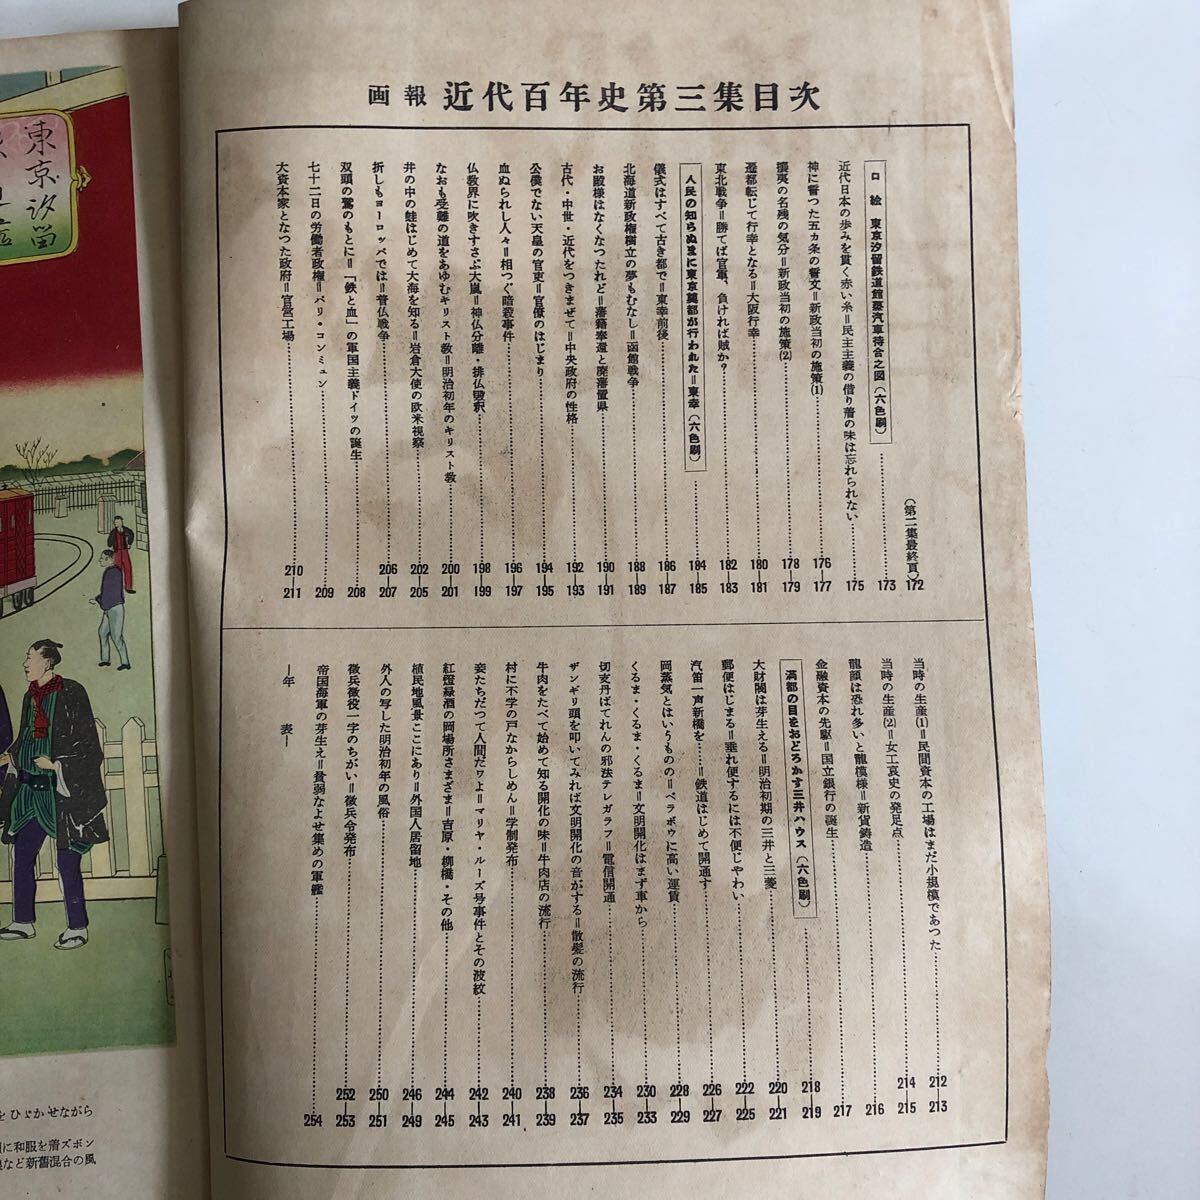 画報 近代百年史第三集目次
(第二集最終頁) 172
口絵 東京汐留鉄道館蒸汽車待合之図(六色刷) 173
近代日本の歩みを貫く赤い糸=民主主義の借り着の味は忘れられない 175
神に誓つた五カ条の誓文=新政当初の施策(1) 176–177
攘夷の名残の気分=新政当初の施策(2) 178–179
遷都転じて行幸となる=大阪行幸 180–181
東北戦争=勝てば官軍、負ければ賊か? 182–183
人民の知らぬまに東京奠都が行われた=東幸(六色刷) 184–185
儀式はすべて古き都で=東幸前後 186–187
北海道新政権樹立の夢もむなし=函館戦争 188–189
お殿様はなくなつたれど=藩籍奉還と廃藩置県 190–191
古代・中世・近代をつきまぜて=中央政府の性格 192–193
公僕でない天皇の官吏=官僚のはじまり 194–195
血ぬられし人々=相つぐ暗殺事件 196–197
仏教界に吹きすさぶ大嵐=神仏分離・排仏毀釈 198–199
なおも受難の道をあゆむキリスト教=明治初年のキリスト教 200–201
井の中の蛙はじめて大海を知る=岩倉大使の欧米視察 202–205
折しもヨーロッパでは=普仏戦争 206–207
双頭の鷲のもとに=「鉄と血」の軍国主義ドイツの誕生 208
七十二日の労働者政権=パリ・コンミュン 209
大資本家となつた政府=官営工場 210–211
当時の生産(1)=民間資本の工場はまだ小規模であつた 212–213
当時の生産(2)=女工哀史の発足点 214–215
龍顔は恐れ多いと龍模様=新貨鋳造 216
金融資本の先駆=国立銀行の誕生 217
満都の目をおどろかす三井ハウス(六色刷) 218–219
大財閥は芽生える=明治初期の三井と三菱 220–221
郵便はじまる=垂れ便するには不便じやわい 222–225
汽笛一声新橋を……=鉄道はじめて開通す 226–227
岡蒸気とはいうものの=ベラボウに高い運賃 228–229
くるま・くるま・くるま=文明開化はまず車から 230–233
切支丹ばてれんの邪法テレガラフ=電信開通 234–235
ザンギリ頭を叩いてみれば文明開化の音がする=散髪の流行 236–237
牛肉をたべて始めて知る開化の味=牛肉店の流行 238–239
村に不学の戸なからしめん=学制発布 240–241
妾たちだつて人間だワよ=マリヤ・ルーズ号事件とその波紋 242–243
紅燈緑酒の岡場所さまざま=吉原・柳橋・その他 244–245
植民地風景ここにあり=外国人居留地 246–249
外人の写した明治初年の風俗 250–251
徴兵懲役一字のちがい=徴兵令発布 252–253
帝国海軍の芽生え=貧弱なよせ集めの軍艦 254
―年表―
東京汐留
をひゞかせながら
に和服を着ズボン
など新舊混合の風